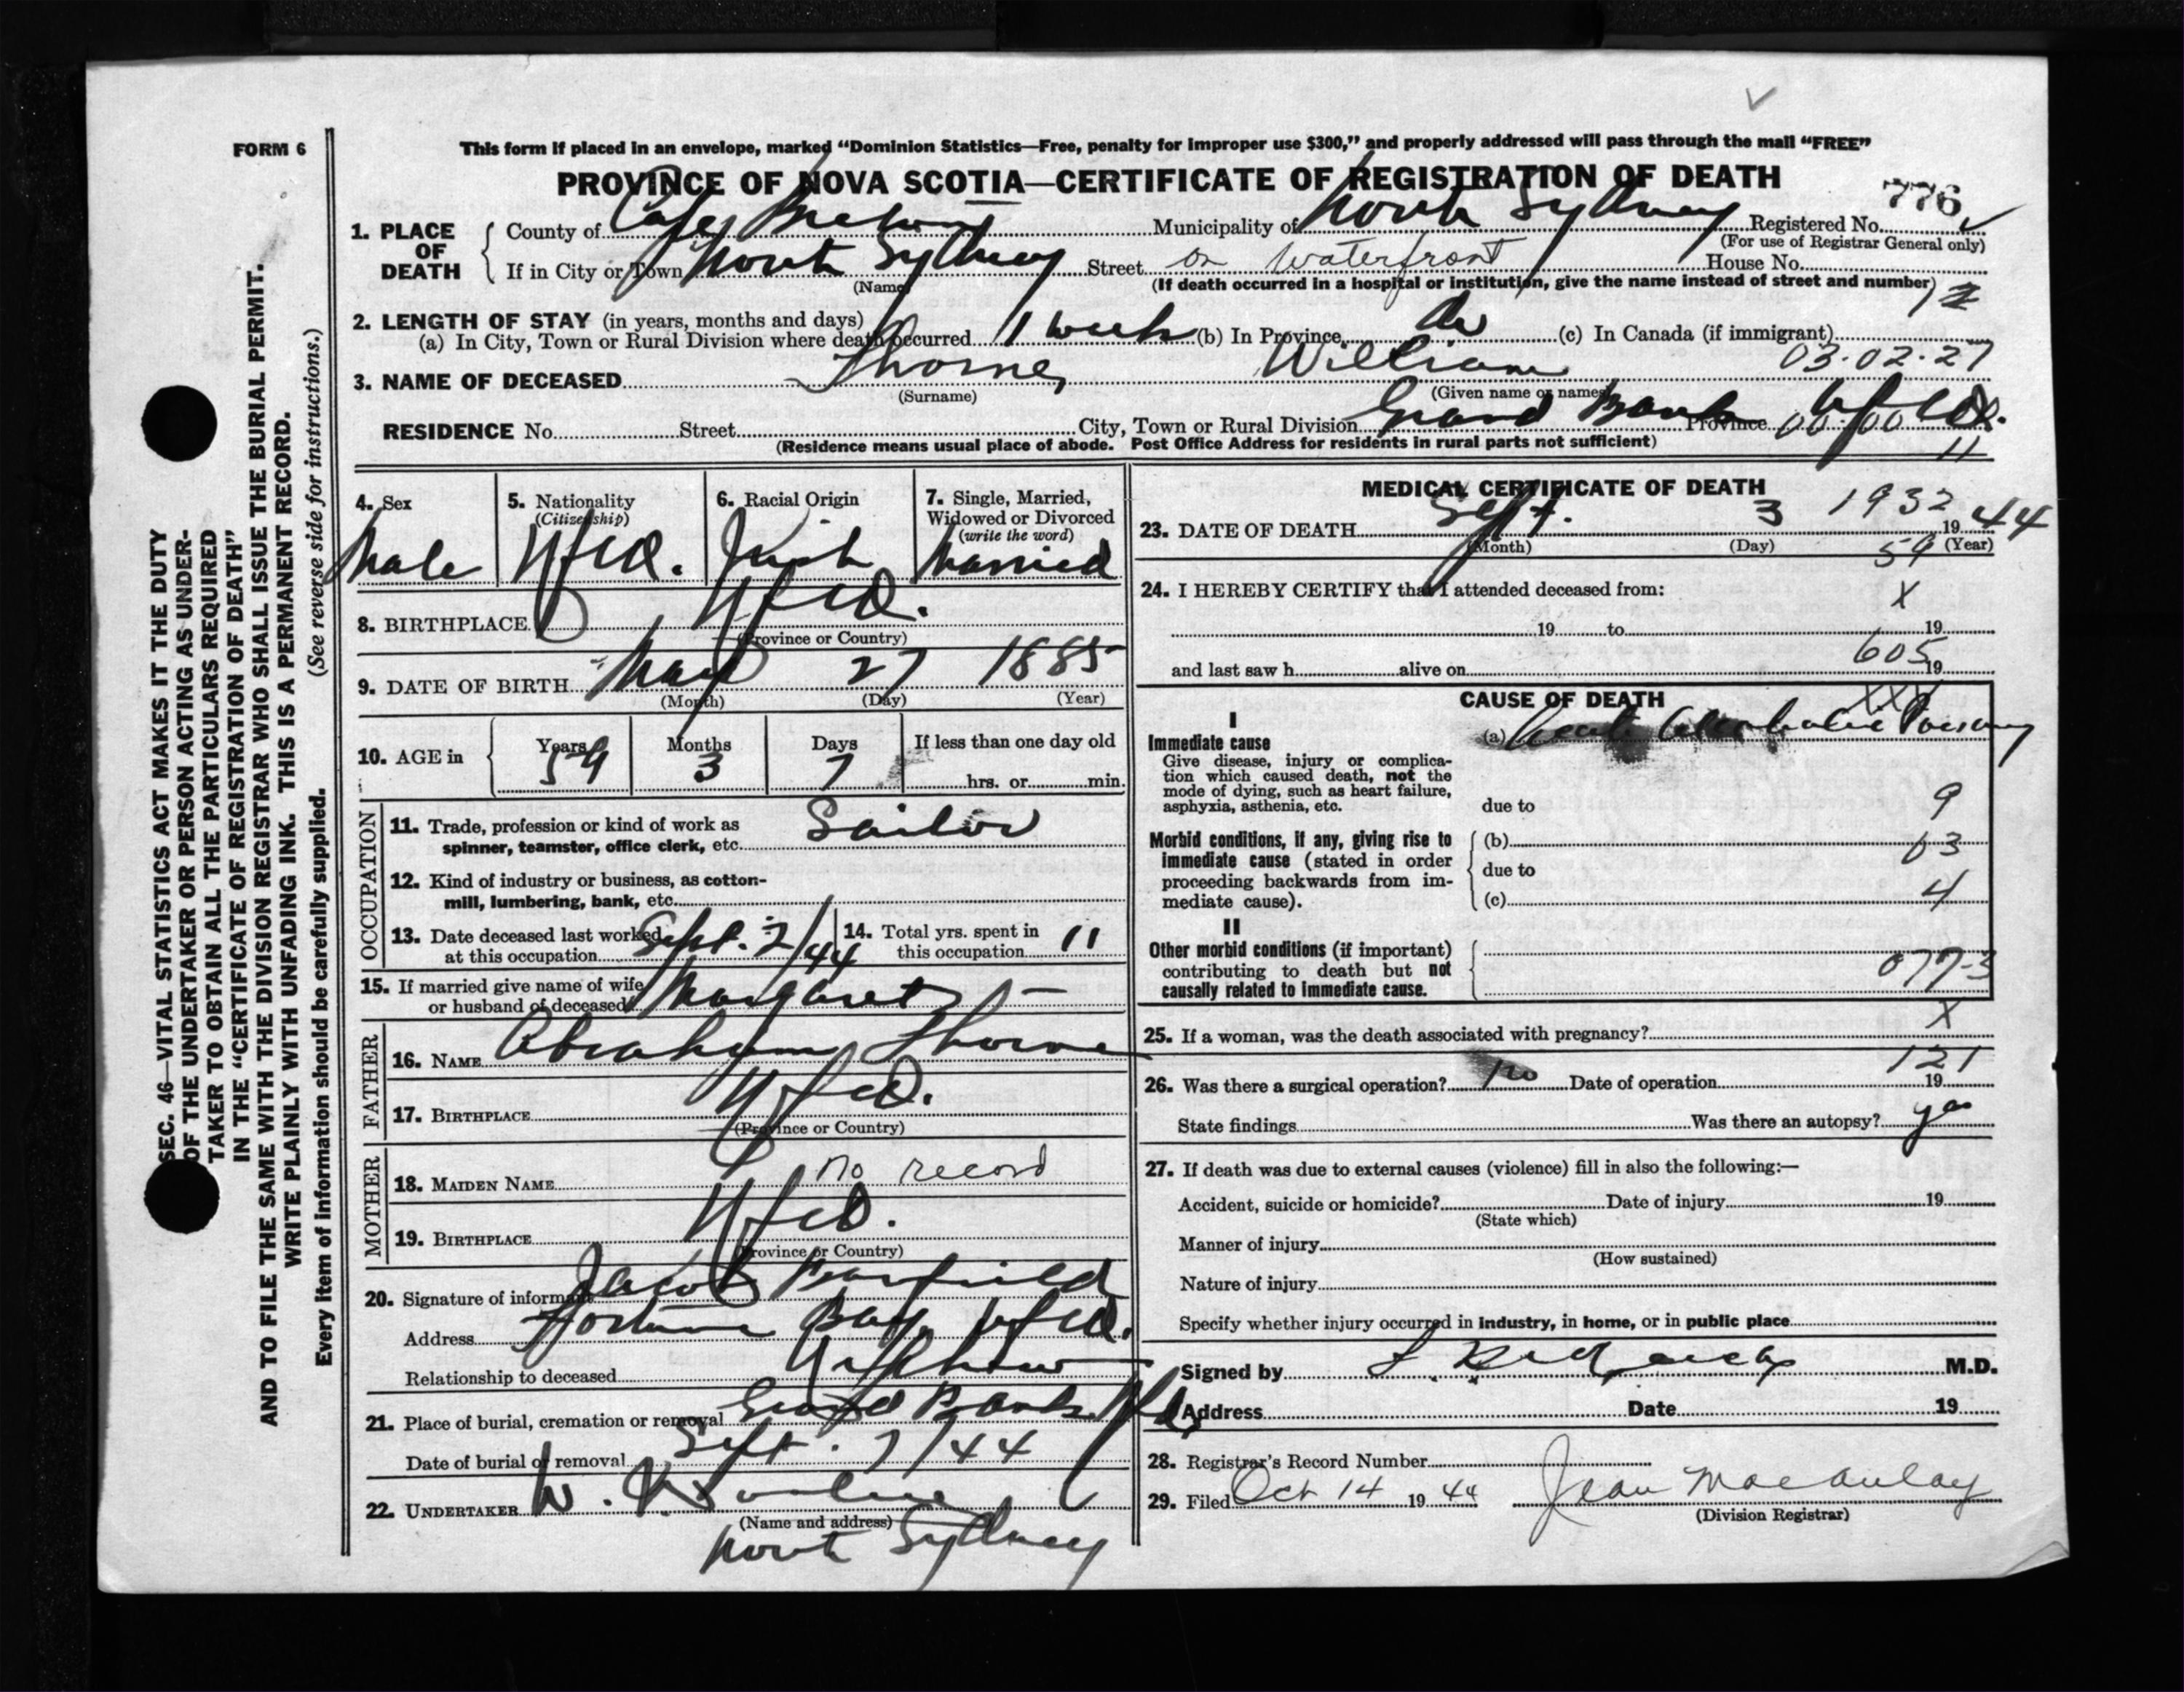 FORM 6
This form if placed in an envelope, marked “Dominion Statistics—Free, penalty for improper use $300,” and properly addressed will pass through the mail “FREE”
PROVINCE OF NOVA SCOTIA—CERTIFICATE OF REGISTRATION OF DEATH
776
1. PLACE OF DEATH
County of Cape Breton Municipality of North Sydney Registered No.
(For use of Registrar General only)
If in City or Town North Sydney Street on Waterfront House No.
(Name) (If death occurred in a hospital or institution, give the name instead of street and number)
2. LENGTH OF STAY (in years, months and days)
(a) In City, Town or Rural Division where death occurred 1 week (b) In Province do (c) In Canada (if immigrant)
03.02.27
3. NAME OF DECEASED Thorne, William
(Surname) (Given name or names)
RESIDENCE No. Street City, Town or Rural Division Grand Bank Province Nfld.
00.00
(Residence means usual place of abode. Post Office Address for residents in rural parts not sufficient)
11
4. Sex Male
5. Nationality (Citizenship) Nfld.
6. Racial Origin
7. Single, Married, Widowed or Divorced (write the word) Married
8. BIRTHPLACE Nfld.
(Province or Country)
9. DATE OF BIRTH May 27 1885
(Month) (Day) (Year)
10. AGE in Years 59 Months 3 Days 7 If less than one day old
hrs. or min.
OCCUPATION
11. Trade, profession or kind of work as spinner, teamster, office clerk, etc. Sailor
12. Kind of industry or business, as cotton-mill, lumbering, bank, etc.
13. Date deceased last worked at this occupation Sept. 2/44
14. Total yrs. spent in this occupation 11
15. If married give name of wife or husband of deceased Margaret —
FATHER
16. NAME Abraham Thorne
17. BIRTHPLACE Nfld.
(Province or Country)
MOTHER
18. MAIDEN NAME no record
19. BIRTHPLACE Nfld.
(Province or Country)
20. Signature of informant Jacob
Address Fortune Bay, Nfld.
Relationship to deceased Nephew
21. Place of burial, cremation or removal Grand Bank, Nfld.
Date of burial or removal Sept. 7/44
22. UNDERTAKER W.
(Name and address)
North Sydney
MEDICAL CERTIFICATE OF DEATH
1932
23. DATE OF DEATH Sept. 3 19 44
(Month) (Day) (Year)
59
24. I HEREBY CERTIFY that I attended deceased from:
X
19 to 19
605
and last saw h alive on 19
CAUSE OF DEATH
XXX
I
Immediate cause
Give disease, injury or complica-
tion which caused death, not the
mode of dying, such as heart failure,
asphyxia, asthenia, etc.
(a) Acute Alcoholic Poisoning
due to
9
Morbid conditions, if any, giving rise to
immediate cause (stated in order
proceeding backwards from im-
mediate cause).
(b)
63
due to
(c)
4
II
Other morbid conditions (if important)
contributing to death but not
causally related to immediate cause.
077-3
X
25. If a woman, was the death associated with pregnancy?
121
26. Was there a surgical operation? no Date of operation 19
State findings Was there an autopsy? yes
27. If death was due to external causes (violence) fill in also the following:—
Accident, suicide or homicide? Date of injury 19
(State which)
Manner of injury
(How sustained)
Nature of injury
Specify whether injury occurred in industry, in home, or in public place
Signed by M.D.
Address Date 19
28. Registrar's Record Number
29. Filed Oct 14 19 44 Jean Macaulay
(Division Registrar)
SEC. 46—VITAL STATISTICS ACT MAKES IT THE DUTY
OF THE UNDERTAKER OR PERSON ACTING AS UNDER-
TAKER TO OBTAIN ALL THE PARTICULARS REQUIRED
IN THE “CERTIFICATE OF REGISTRATION OF DEATH”
AND TO FILE THE SAME WITH THE DIVISION REGISTRAR WHO SHALL ISSUE THE BURIAL PERMIT.
WRITE PLAINLY WITH UNFADING INK. THIS IS A PERMANENT RECORD.
Every item of information should be carefully supplied. (See reverse side for instructions.)